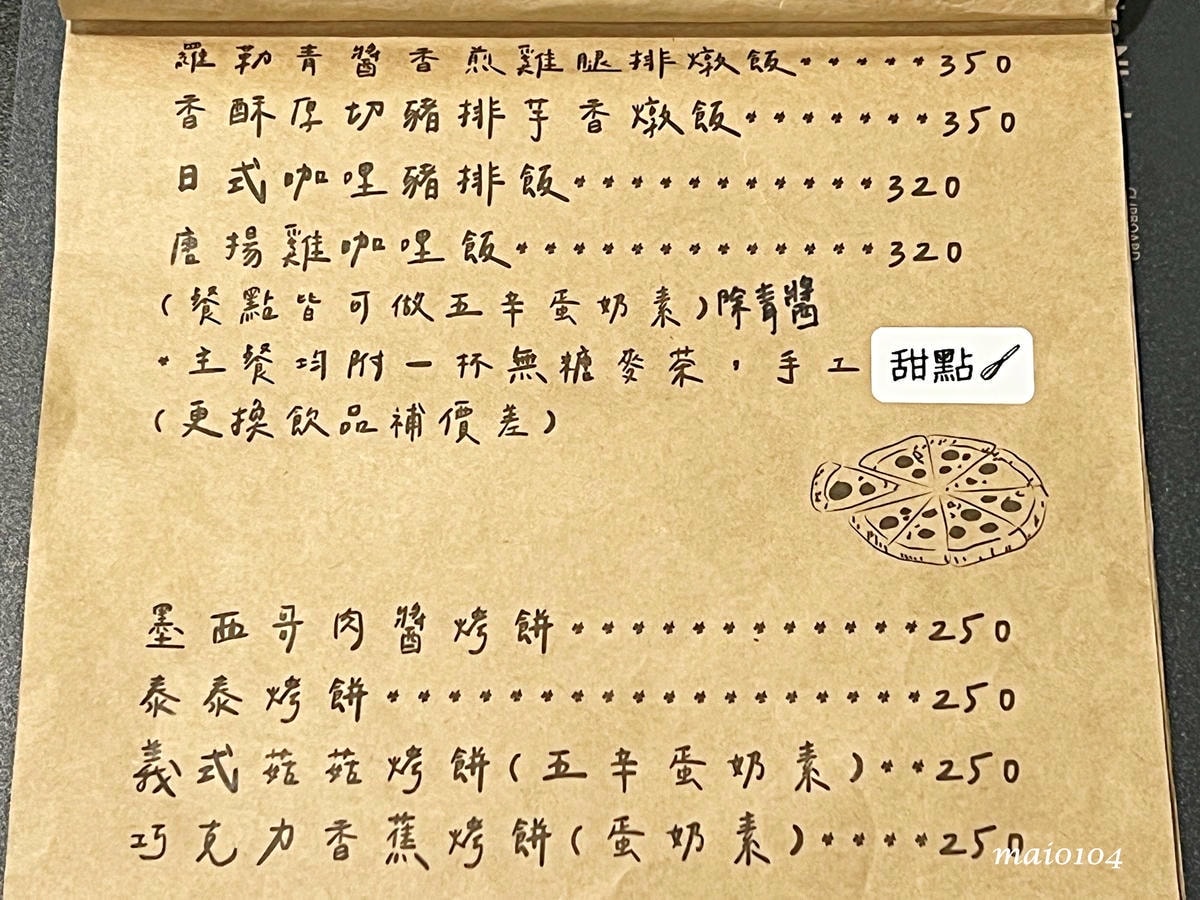 羅勒青醬香煎雞腿排燉飯••••••350
香酥厚切豬排芋香燉飯•••••••350
日式咖哩豬排飯•••••••••••320
唐揚雞咖哩飯•••••••••••••320
(餐點皆可做五辛蛋奶素)除青醬
*主餐均附一杯無糖麥茶，手工 甜點
(更換飲品補價差)
墨西哥肉醬烤餅••••••••••••250
泰泰烤餅••••••••••••••••••250
義式菇菇烤餅(五辛蛋奶素)••250
巧克力香蕉烤餅(蛋奶素)••••250
maio104